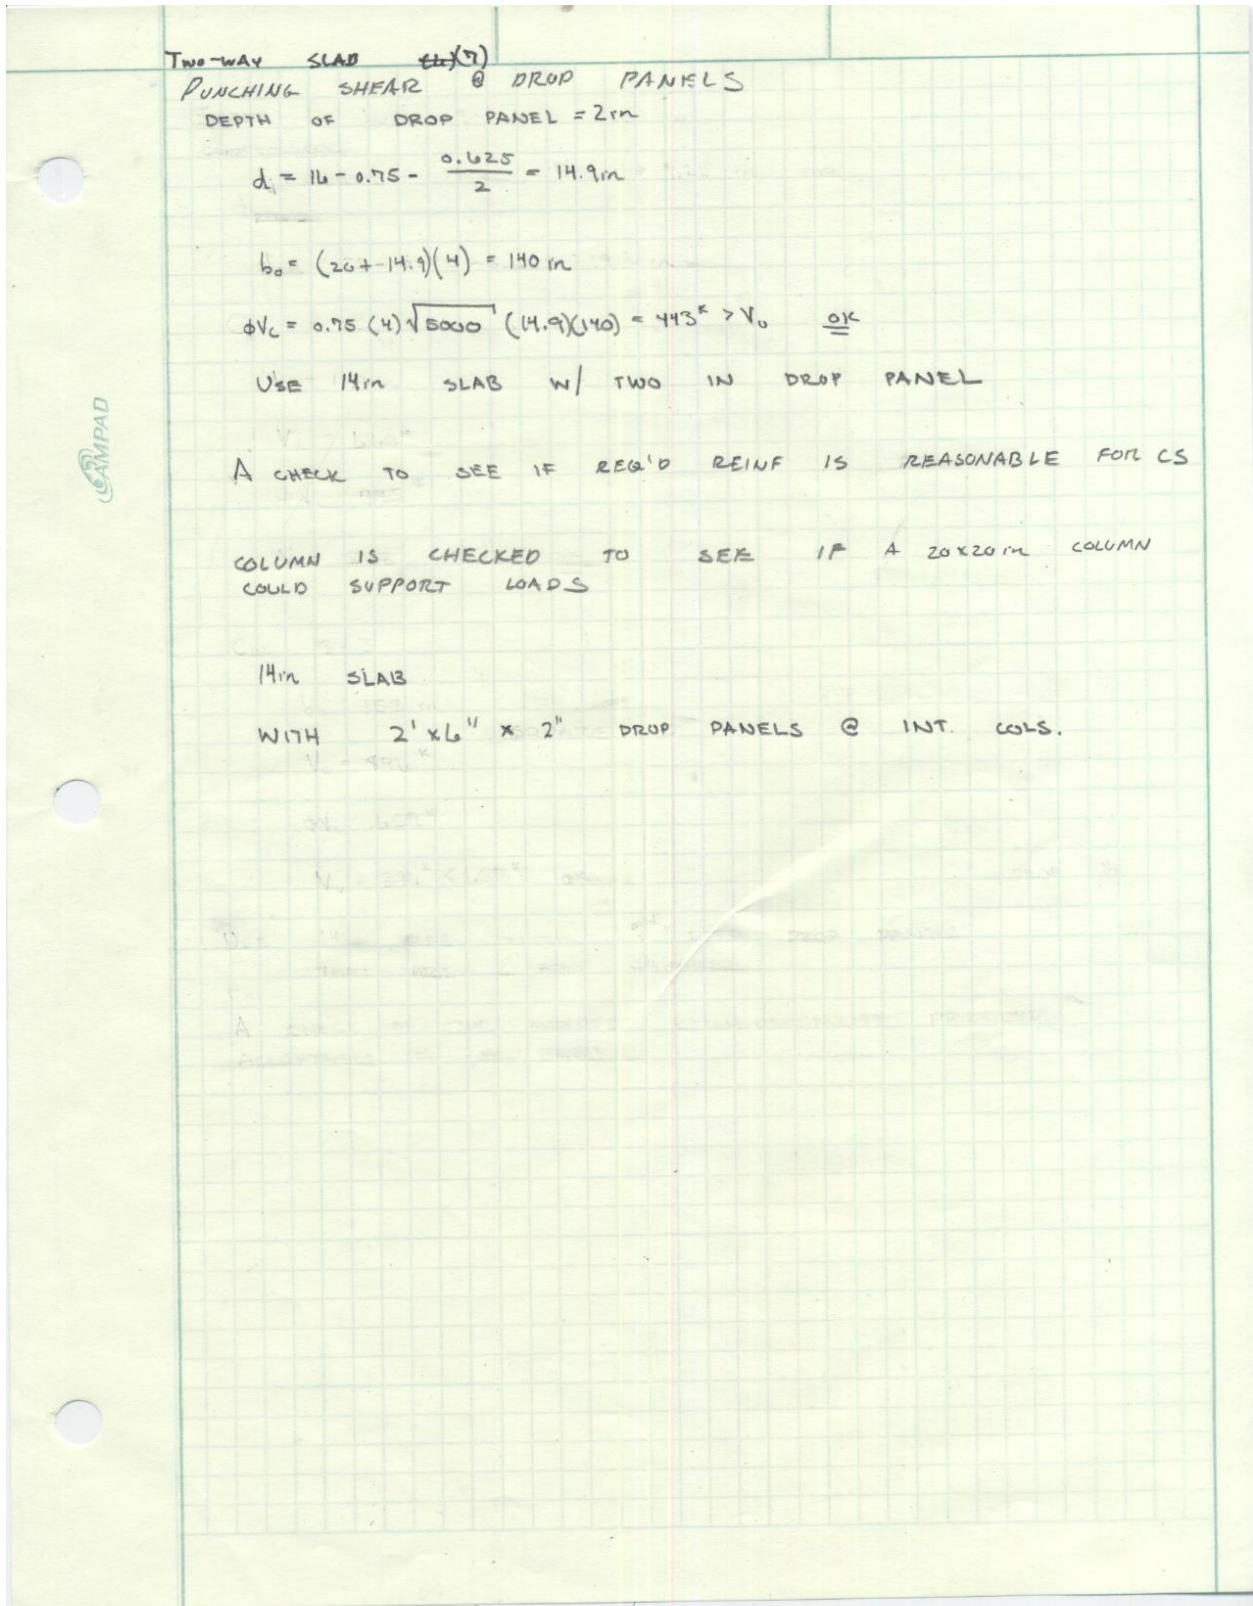 TWO-WAY SLAB (7)
PUNCHING SHEAR @ DROP PANELS
DEPTH OF DROP PANEL = 2in
d = 16 - 0.75 - 0.625/2 = 14.9in
b₀ = (20+14.9)(4) = 140 in
φVc = 0.75 (4)√5000 (14.9)(140) = 443ᴷ > Vu OK
USE 14in SLAB W/ TWO IN DROP PANEL
A CHECK TO SEE IF REQ'D REINF IS REASONABLE FOR CS
COLUMN IS CHECKED TO SEE IF A 20x20in COLUMN
COULD SUPPORT LOADS
14in SLAB
WITH 2'x6" x 2" DROP PANELS @ INT. COLS.
AMPAD